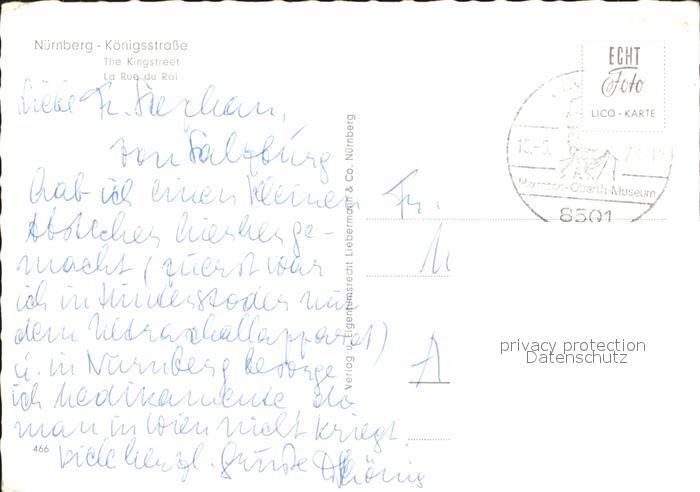 Nürnberg - Königsstraße
The Kingstreet
La Rue du Roi
Liebe Fr. Stephan,
von Salzburg
hab ich einen kleinen
Abstecher hierher ge-
macht (zuerst war
ich in Hinderstoder mit
dem Ultraschallapparat)
u. in Nürnberg besorge
ich Medikamente die
man in Wien nicht kriegt.
Viele herzl. Grüße
466
Verlag u. Eigentumsrecht Liebermann & Co. Nürnberg
ECHT
Foto
LICO - KARTE
Hermann-Oberth-Museum
8501
Fr.
A
privacy protection
Datenschutz